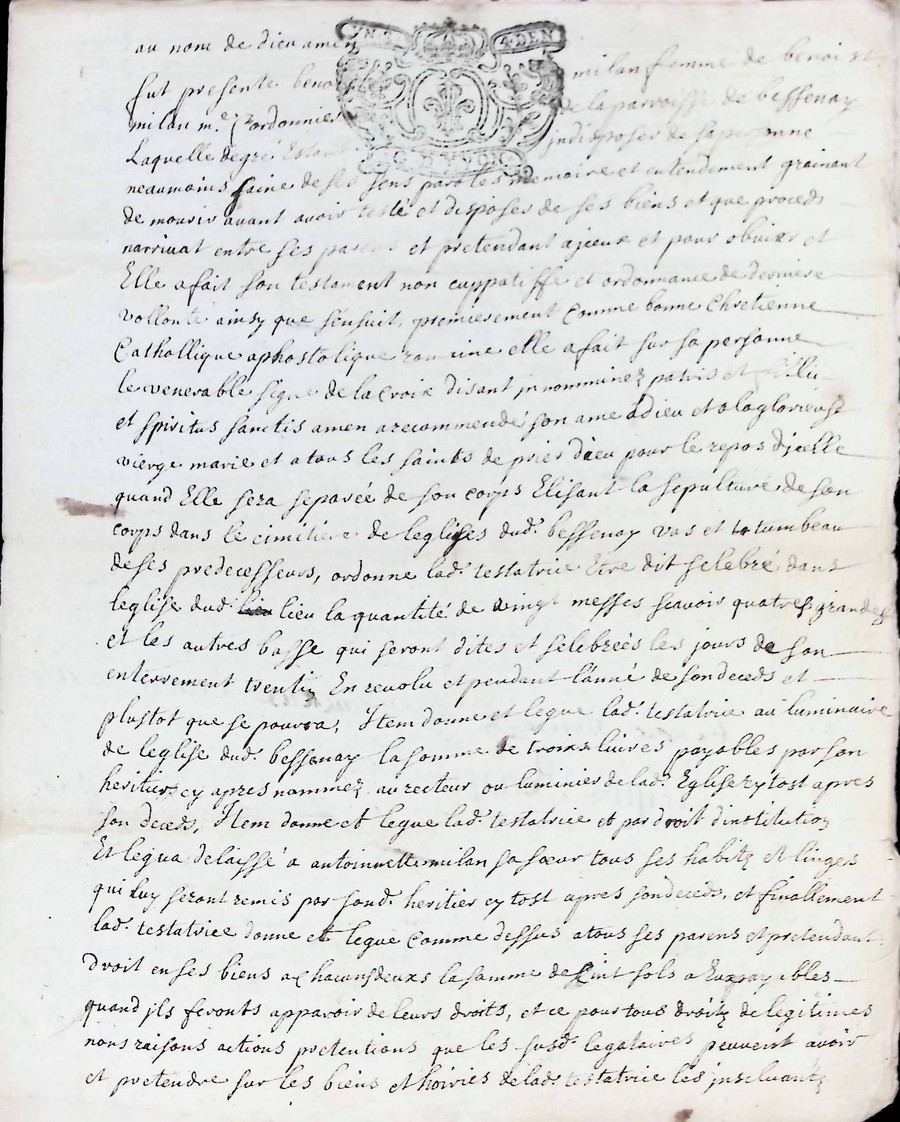 au nom de dieu amen
fut presente benoiste milan femme de benoist
milan m.e Cordonnier de la parroisse de bessenay
Laquelle degré Estant indisposer de sa personne
neaumoins saine de ses sens parolles memoire et entendement grainant
de mourir avant avoir testé et disposes de ses biens et que proceds
narrivat entre ses parens et pretendant ajceux et pour obvier et
Elle a fait son testament non cuppatiffe et ordonnance de derniere
vollonté ainsy que sensuit, premierement comme bonne Chretienne
Catholique aphostolique romaine elle a fait sur sa personne
le venerable signe de la Croix disant jn nominez patris et fillu
et spiritus sanctis amen a recommendé son ame adieu et alaglorieuse
vierge marie et a tous les saints de prier dieu pour le repos djcelle
quand Elle sera separée de son corps Elisant la sepulture de son
corps dans le cimitiere de leglises dud. bessenay vas et tumbeau
de ses predecesseurs, ordonne lad. testatrice Etre dit selebré dans
leglise dud. lieu la quantité de vingt messes scavoir quatres grandes
et les autres basse qui seront dites et selebreés les jours de son
enterrement trentin En revolu et pendant l'anné de son deceds et
plustot que se pourra, Jtem donne et legue lad. testatrice au luminaire
de leglise dud. bessenay la somme de trois livres payables par son
heritier cy apres nommez au recteur ou luminier de lad. Eglise sytost apres
son deceds, Jtem donne et legue lad. testatrice et par droit dinstitution
Et legua delaissé a antoinette milan sa sœur tous ses habitz et linges
qui luy seront remis par sond. heritier cy tost apres son deceds, et finallement
lad. testatrice donne et legue comme dessus a tous ses parens et pretendant
droit en ses biens a Chacuns deux la somme de Cint sols a Eux payables
quand jls feronts apparoir de leurs droits, et ce pour tous droitz de legitimes
noms raisons actions pretentions que les susd. legataires peuvent avoir
et pretendre sur les biens et hoiries de lad. testatrice les jnstituantz